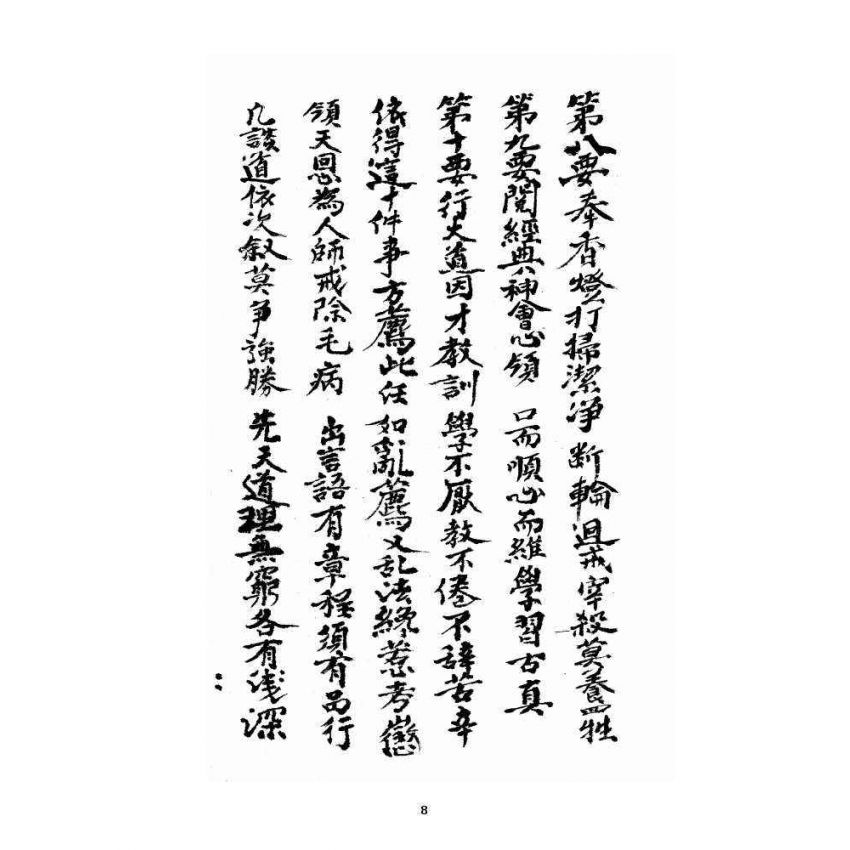 第八要奉香燈打掃潔净 断輪迴戒宰殺莫養四牲
第九要閱經典神會心領 口而順心而維學習古真
第十要行大道因才教訓 學不厭教不倦不辞苦辛
依得這十件事方薦此任 如亂薦又乱法終惹考懲
領天恩為人師戒除毛病 出言語有章程須有品行
凡談道依次叙莫争強勝 先天道理無窮各有浅深
8